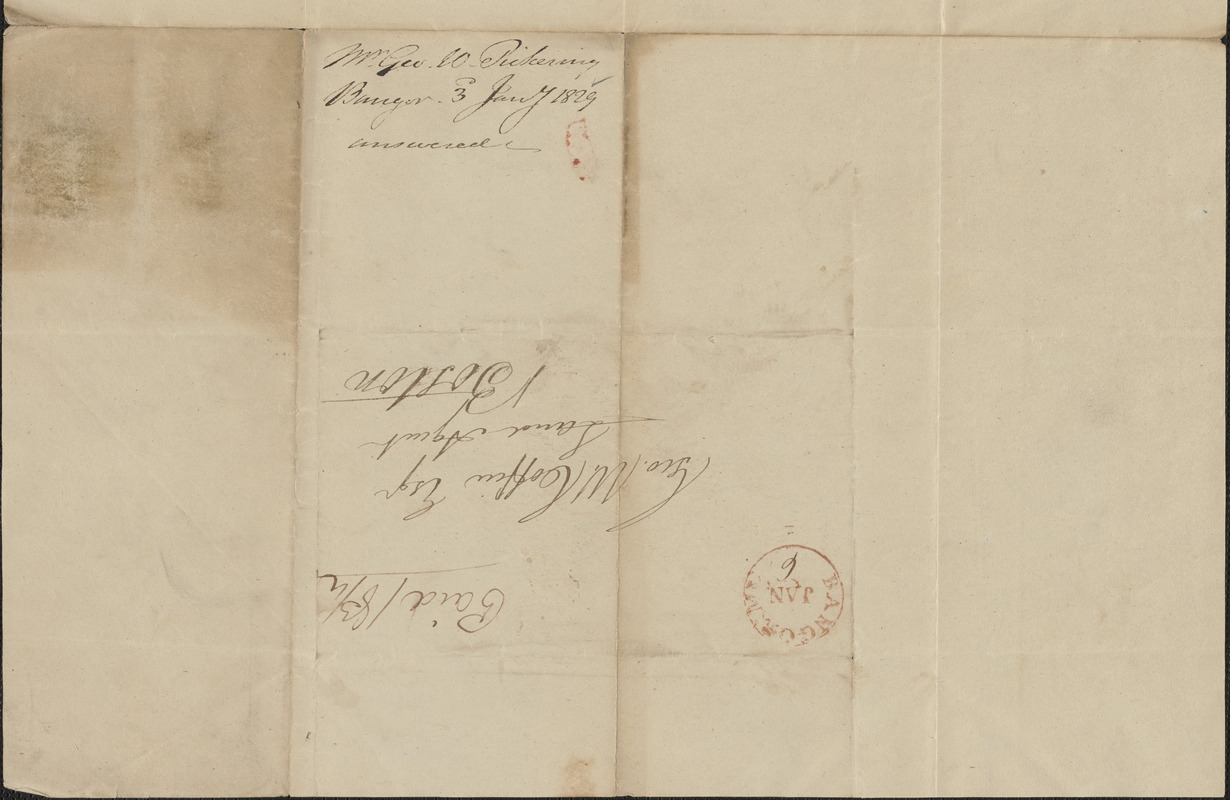 Mr. Geo. W. Pickering
Bangor. 3 Jany 1829
answered
Paid 18 1/2
BANGOR M
JAN
6
Geo. W. Coffin Esqr
Land Agent
Boston